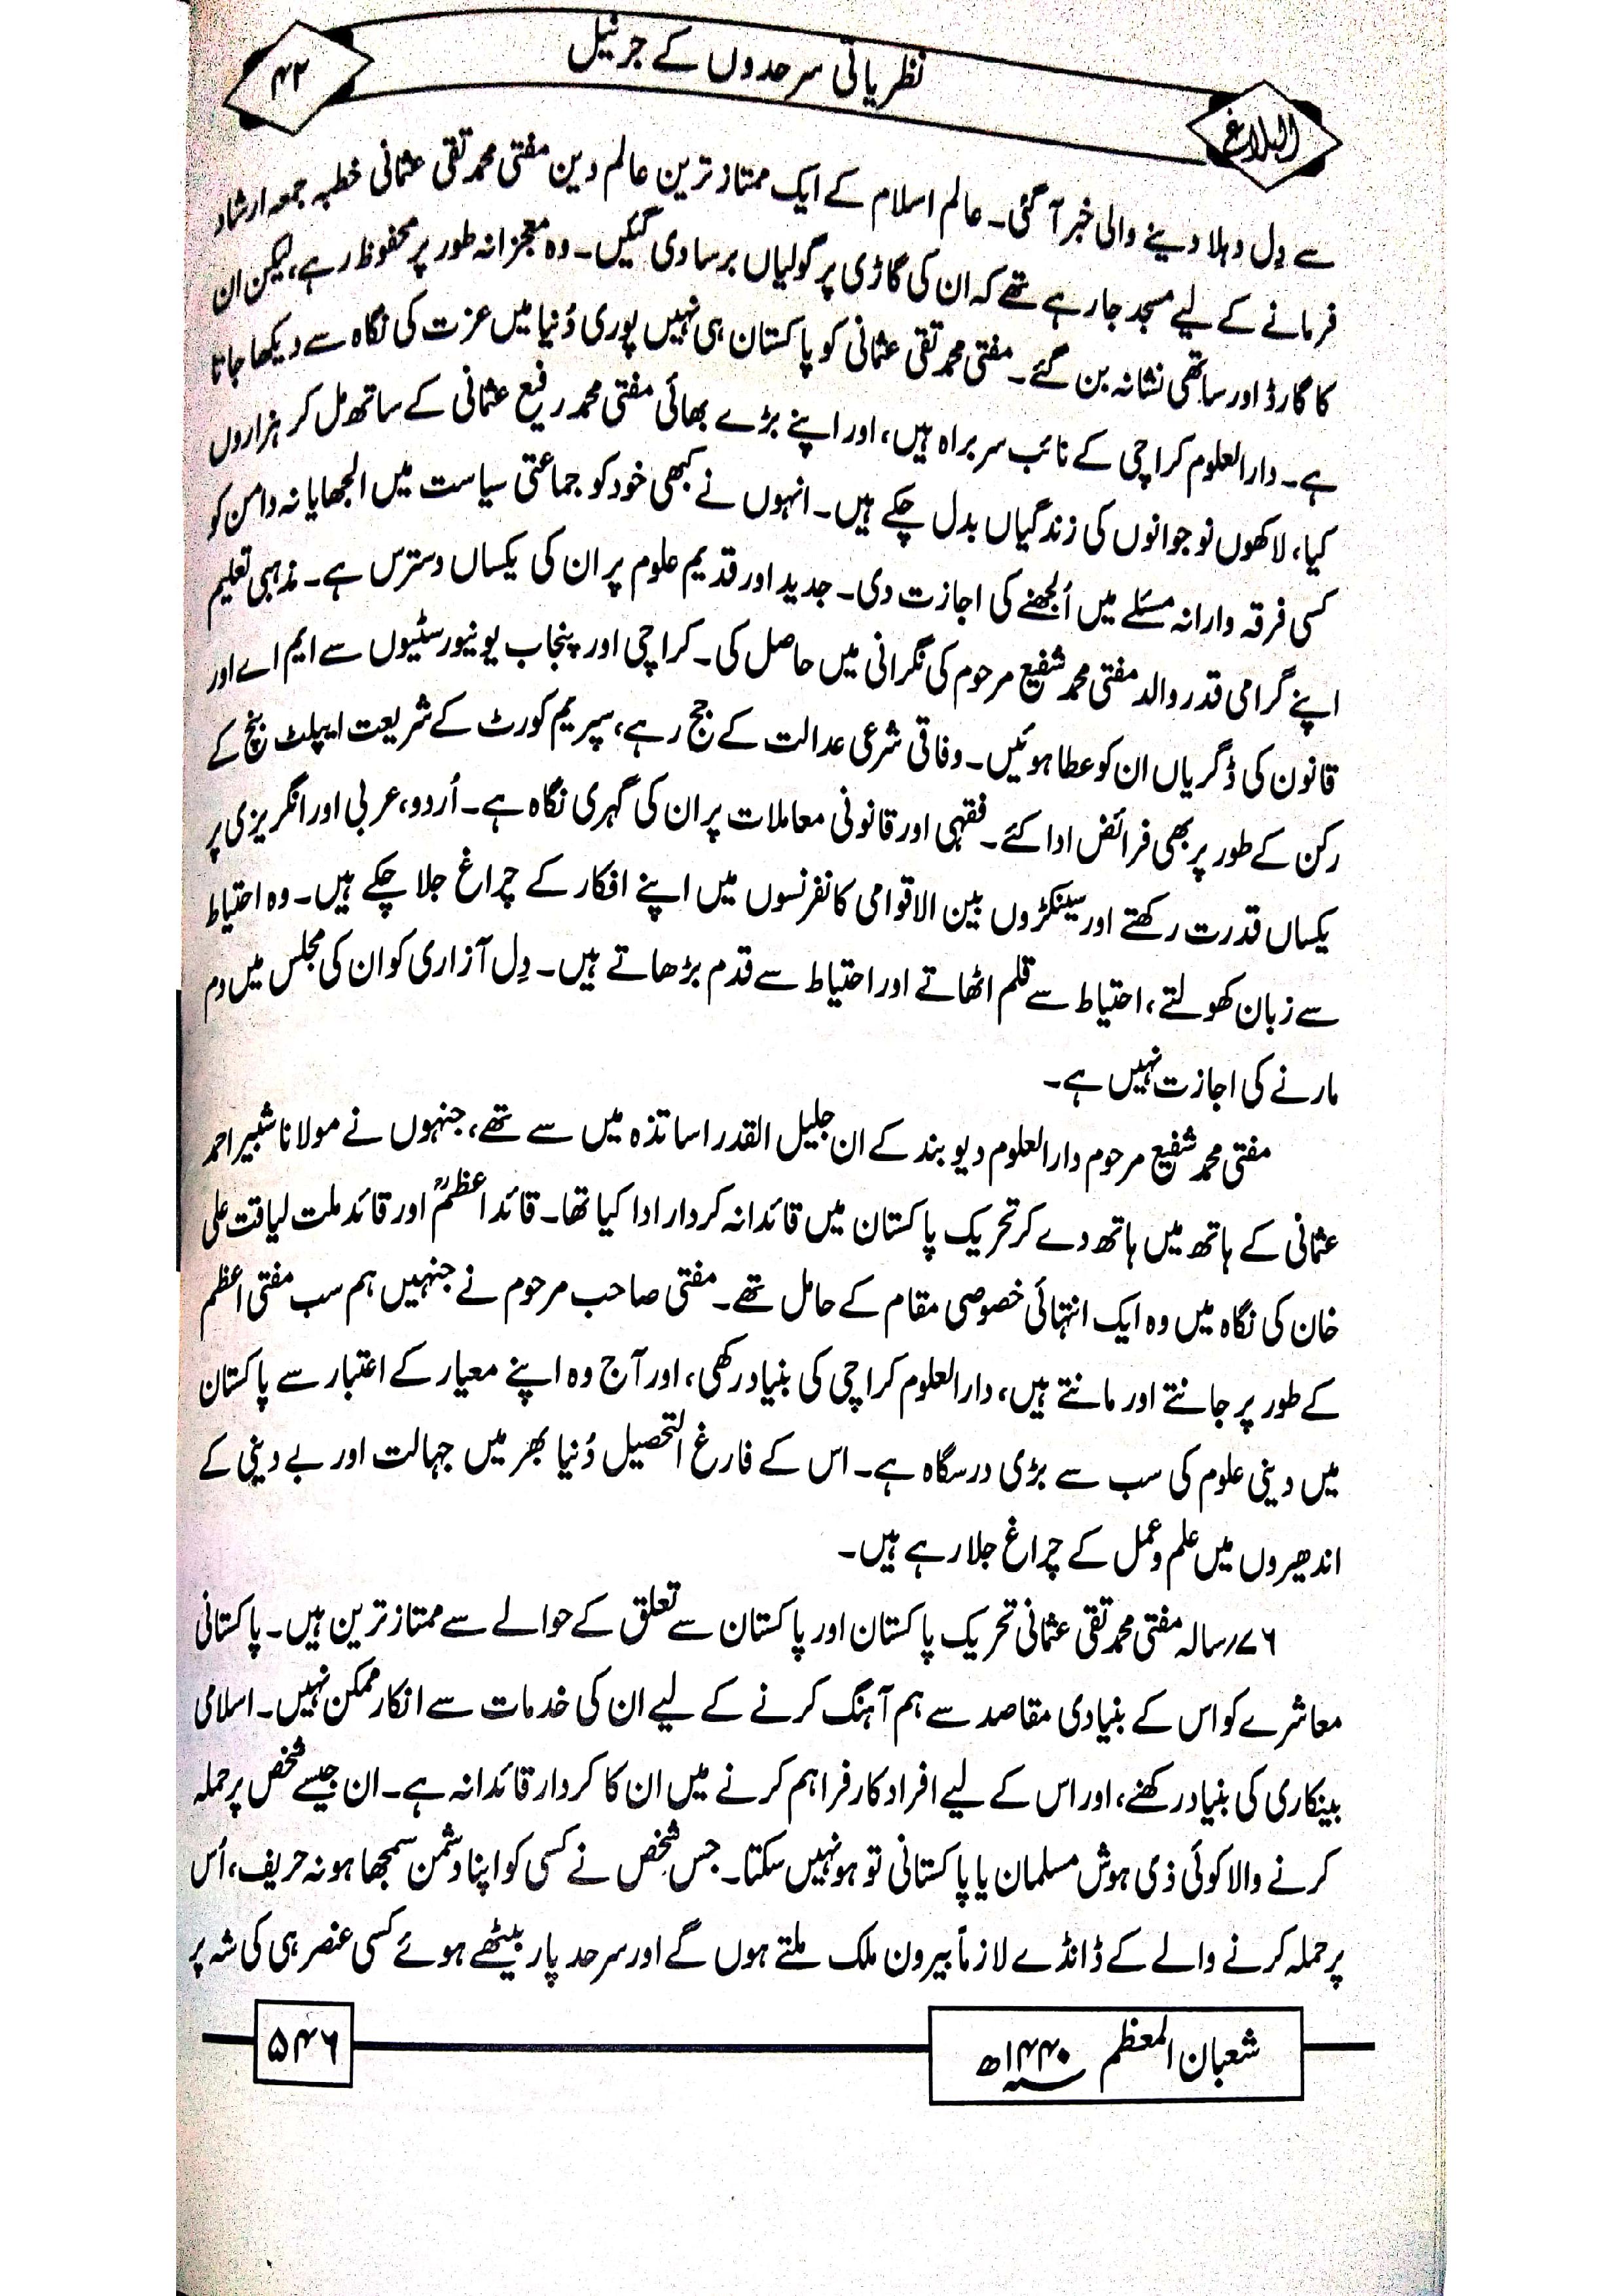 البلاغ
نظریاتی سرحدوں کے جرنیل
۴۲
سے دِل دہلا دینے والی خبر آ گئی۔ عالم اسلام کے ایک ممتاز ترین عالم دین مفتی محمد تقی عثمانی خطبہ جمعہ ارشاد
فرمانے کے لیے مسجد جا رہے تھے کہ ان کی گاڑی پر گولیاں برسا دی گئیں۔ وہ معجزانہ طور پر محفوظ رہے، لیکن ان
کا گارڈ اور ساتھی نشانہ بن گئے۔ مفتی محمد تقی عثمانی کو پاکستان ہی نہیں پوری دُنیا میں عزت کی نگاہ سے دیکھا جاتا
ہے۔ دارالعلوم کراچی کے نائب سربراہ ہیں، اور اپنے بڑے بھائی مفتی محمد رفیع عثمانی کے ساتھ مل کر ہزاروں
کیا، لاکھوں نوجوانوں کی زندگیاں بدل چکے ہیں۔ انہوں نے کبھی خود کو جماعتی سیاست میں الجھایا نہ دامن کو
کسی فرقہ وارانہ مسئلے میں اُلجھنے کی اجازت دی۔ جدید اور قدیم علوم پر ان کی یکساں دسترس ہے۔ مذہبی تعلیم
اپنے گرامی قدر والد مفتی محمد شفیع مرحوم کی نگرانی میں حاصل کی۔ کراچی اور پنجاب یونیورسٹیوں سے ایم اے اور
قانون کی ڈگریاں ان کو عطا ہوئیں۔ وفاقی شرعی عدالت کے جج رہے، سپریم کورٹ کے شریعت ایپلٹ بنچ کے
رکن کے طور پر بھی فرائض ادا کئے۔ فقہی اور قانونی معاملات پر ان کی گہری نگاہ ہے۔ اُردو، عربی اور انگریزی پر
یکساں قدرت رکھتے اور سینکڑوں بین الاقوامی کانفرنسوں میں اپنے افکار کے چراغ جلا چکے ہیں۔ وہ احتیاط
سے زبان کھولتے، احتیاط سے قلم اٹھاتے اور احتیاط سے قدم بڑھاتے ہیں۔ دِل آزاری کو ان کی مجلس میں دم
مارنے کی اجازت نہیں ہے۔
مفتی محمد شفیع مرحوم دارالعلوم دیوبند کے ان جلیل القدر اساتذہ میں سے تھے، جنہوں نے مولانا شبیر احمد
عثمانی کے ہاتھ میں ہاتھ دے کر تحریک پاکستان میں قائدانہ کردار ادا کیا تھا۔ قائد اعظمؒ اور قائد ملت لیاقت علی
خان کی نگاہ میں وہ ایک انتہائی خصوصی مقام کے حامل تھے۔ مفتی صاحب مرحوم نے جنہیں ہم سب مفتی اعظم
کے طور پر جانتے اور مانتے ہیں، دارالعلوم کراچی کی بنیاد رکھی، اور آج وہ اپنے معیار کے اعتبار سے پاکستان
میں دینی علوم کی سب سے بڑی درسگاہ ہے۔ اس کے فارغ التحصیل دُنیا بھر میں جہالت اور بے دینی کے
اندھیروں میں علم و عمل کے چراغ جلا رہے ہیں۔
۷۶؍سالہ مفتی محمد تقی عثمانی تحریک پاکستان اور پاکستان سے تعلق کے حوالے سے ممتاز ترین ہیں۔ پاکستانی
معاشرے کو اس کے بنیادی مقاصد سے ہم آہنگ کرنے کے لیے ان کی خدمات سے انکار ممکن نہیں۔ اسلامی
بینکاری کی بنیاد رکھنے، اور اس کے لیے افراد کار فراہم کرنے میں ان کا کردار قائدانہ ہے۔ ان جیسے شخص پر حملہ
کرنے والا کوئی ذی ہوش مسلمان یا پاکستانی تو ہو نہیں سکتا۔ جس شخص نے کسی کو اپنا دشمن سمجھا ہو نہ حریف، اُس
پر حملہ کرنے والے کے ڈانڈے لازماً بیرون ملک ملتے ہوں گے اور سرحد پار بیٹھے ہوئے کسی عنصر ہی کی شہ پر
شعبان المعظم ۱۴۴۰ھ
۵۴۶